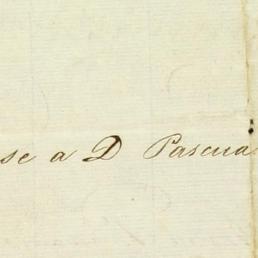 se a D Pascua